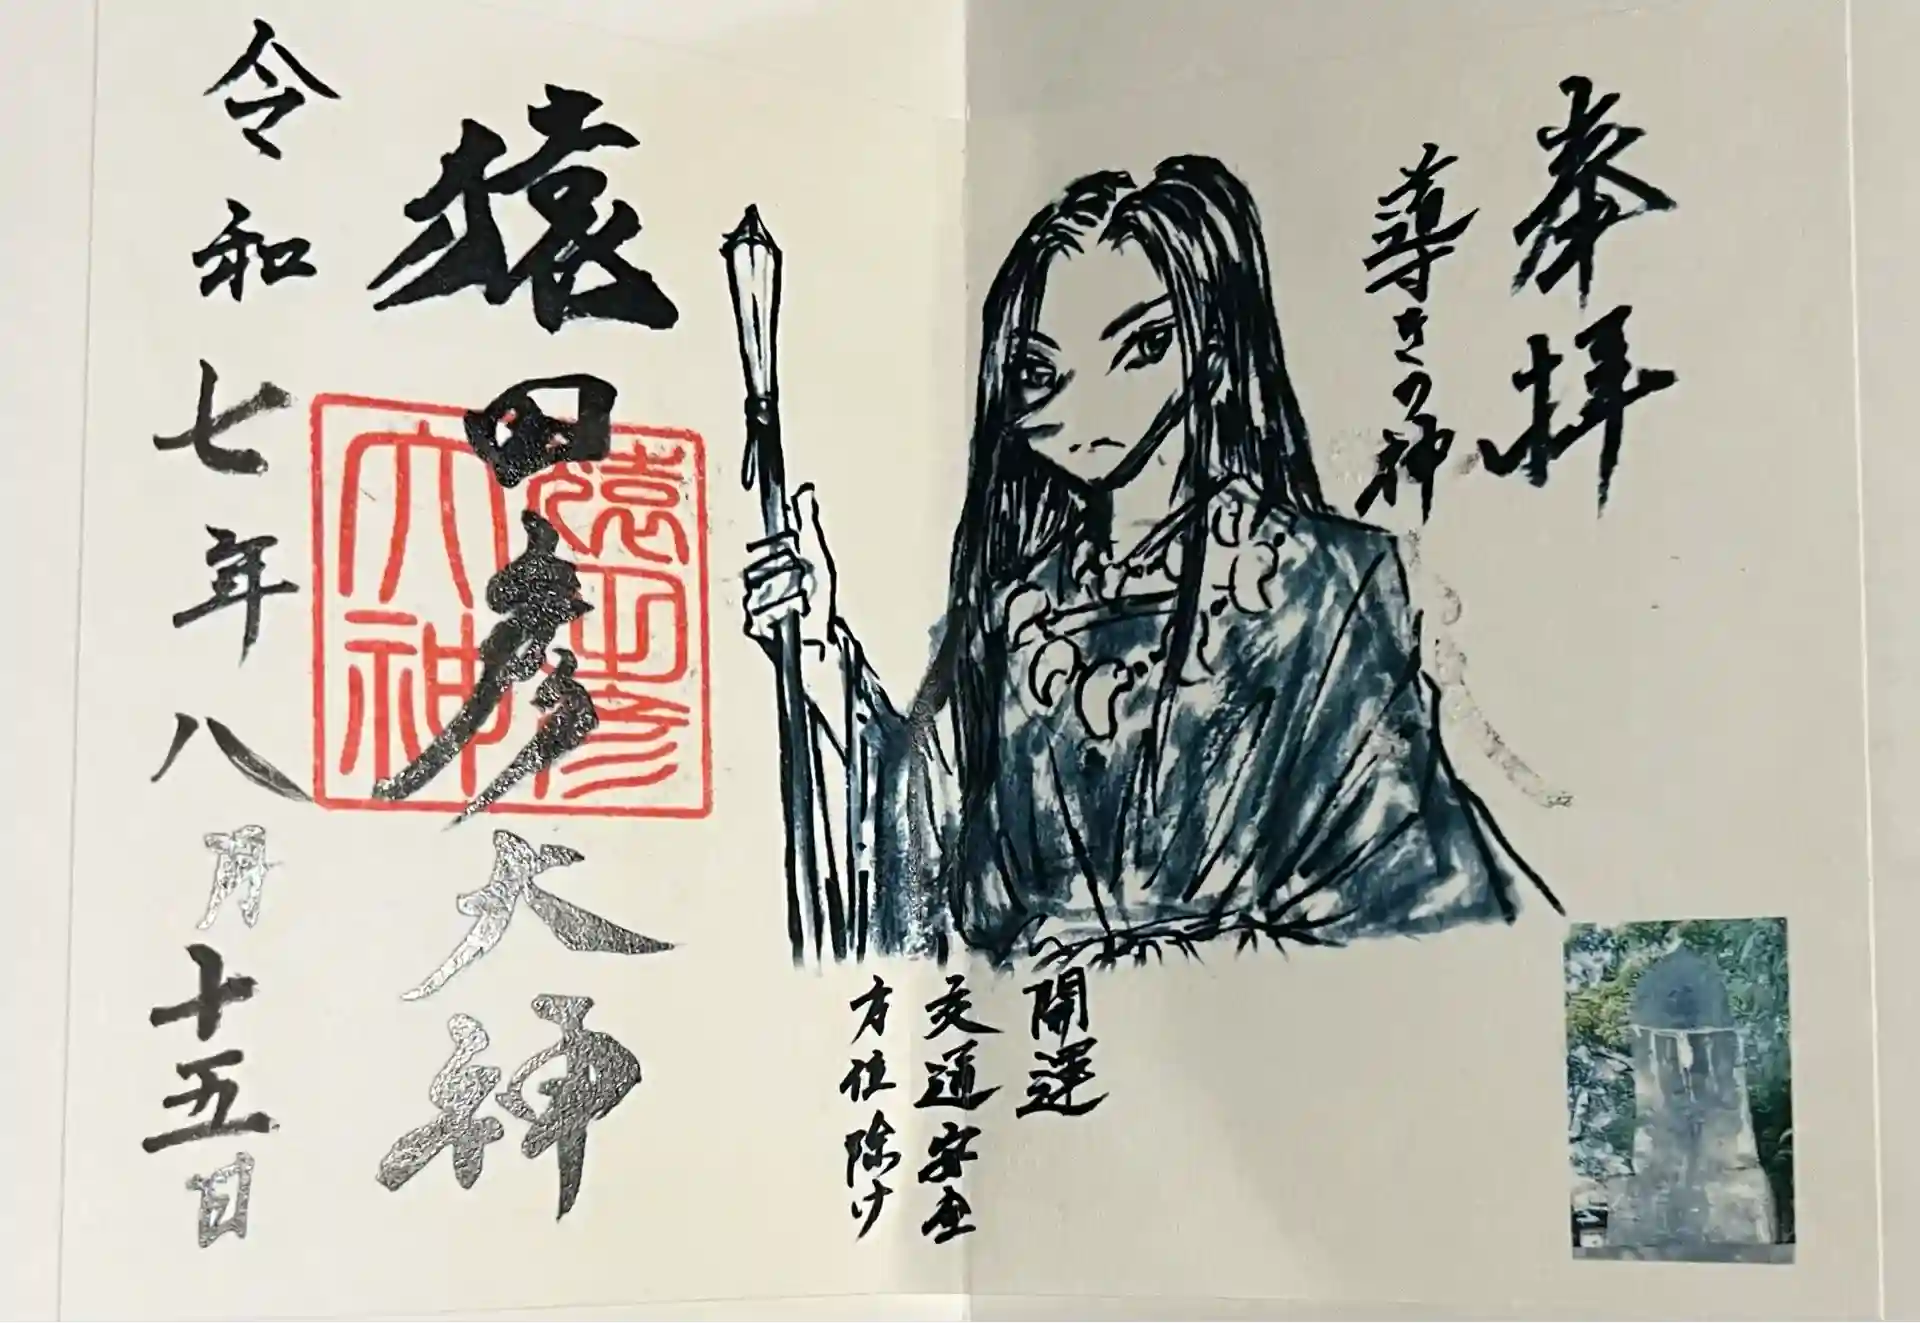 奉拝
導きの神
開運
交通安全
方位除け
猿田彦大神
猿田彦大神
令和七年八月十五日